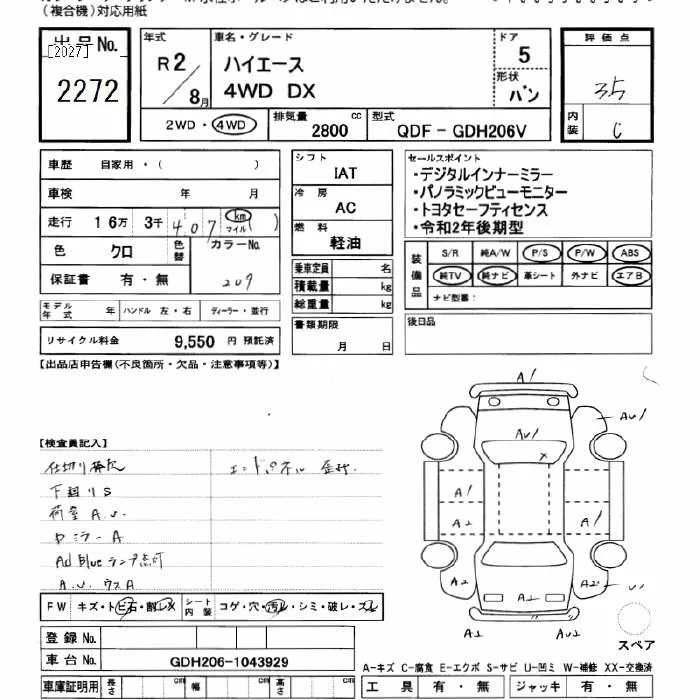 （複合機）対応用紙
出品No.
[2027]
2272
年式
R2/8月
車名・グレード
ハイエース
4WD DX
ドア
5
形状
バン
評価点
3.5
内装
C
2WD・4WD
排気量 2800 cc
型式 QDF - GDH206V
車歴 自家用・（ ）
車検 年 月
走行 16万 3千 407 km マイル ( )
色 クロ 色替 カラーNo. 209
保証書 有・無
シフト IAT
冷房 AC
燃料 軽油
乗車定員 名
積載量 kg
総重量 kg
書類期限 月 日
セールスポイント
・デジタルインナーミラー
・パノラミックビューモニター
・トヨタセーフティセンス
・令和2年後期型
装備品
S/R 純A/W P/S P/W ABS
純TV 純ナビ 革シート 外ナビ エアB
ナビ型番：
後日品
モデル年式 年 ハンドル 左・右 ディーラー・並行
リサイクル料金 9,550 円 預託済
【出品店申告欄(不良箇所・欠品・注意事項等)】
【検査員記入】
下廻りS
荷室 A.U.
ミラーA
Ad Blue ランプ点灯
A.U. ウスA
FW キズ・トビ石・割レX シート内装 コゲ・穴・汚レ・シミ・破レ・スレ
登録No.
車台No. GDH206-1043929
車庫証明用 長さ cm 幅 cm 高さ cm
A1
AU1
AU1
X
A1
A1
A2
A1
A2
AU2
A2
AU2
スペア
A-キズ C-腐食 E-エクボ S-サビ U-凹ミ W-補修 XX-交換済
工具 有・無 ジャッキ 有・無